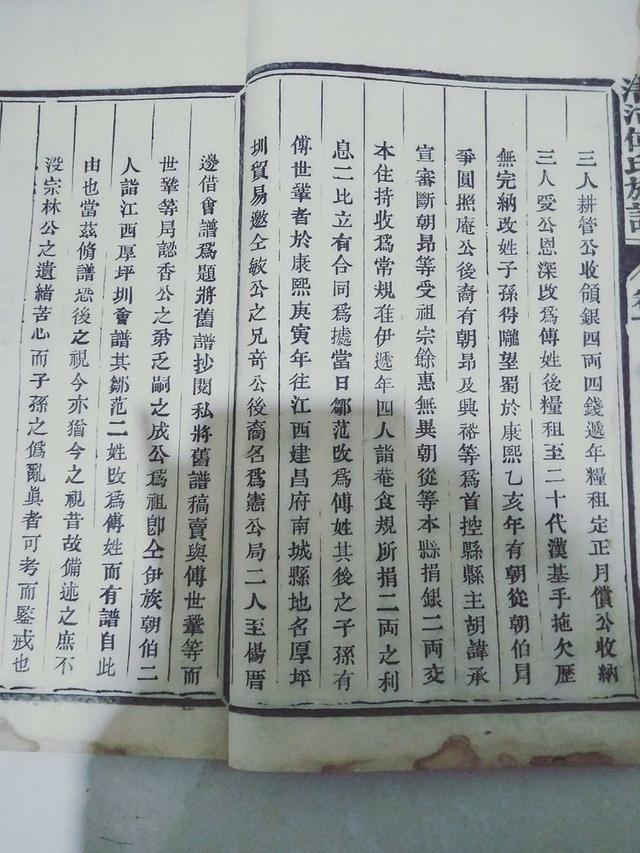 清河傅氏族譜
三人耕管公收領銀四両四錢遞年糧租定正月償公收納
三人愛公恩深改爲傅姓後糧租至二十代漢基手拖欠歷
無完納改姓子孫得隴望蜀於康熙乙亥年有朝從朝伯員
爭圓照庵公後裔有朝昂及興裕等爲首控縣縣主胡諱承
宣審斷朝昂等受祖宗餘惠無異朝從等本縣捐銀二両交
本住持收爲常規在伊遞年四人詣菴食規所捐二両之利
息二比立有合同爲據當日鄒范改爲傅姓其後之子孫有
傅世鞏者於康熙庚寅年往江西建昌府南城縣地名厚坪
圳貿易邀仝敏公之兄竒公後裔名爲憲公局二人至楊厝
邊借會譜爲題將舊譜抄閱私將舊譜稿賣與傅世鞏等而
世鞏等局認香公之弟乏嗣之成公爲祖卽仝伊族朝伯二
人詣江西厚坪圳會譜其鄒范二姓改爲傅姓而有譜自此
由也當茲脩譜恐後之視今亦猶今之視昔故備述之庶不
沒宗林公之遺緒苦心而子孫之僞亂眞者可考而鑒戒也